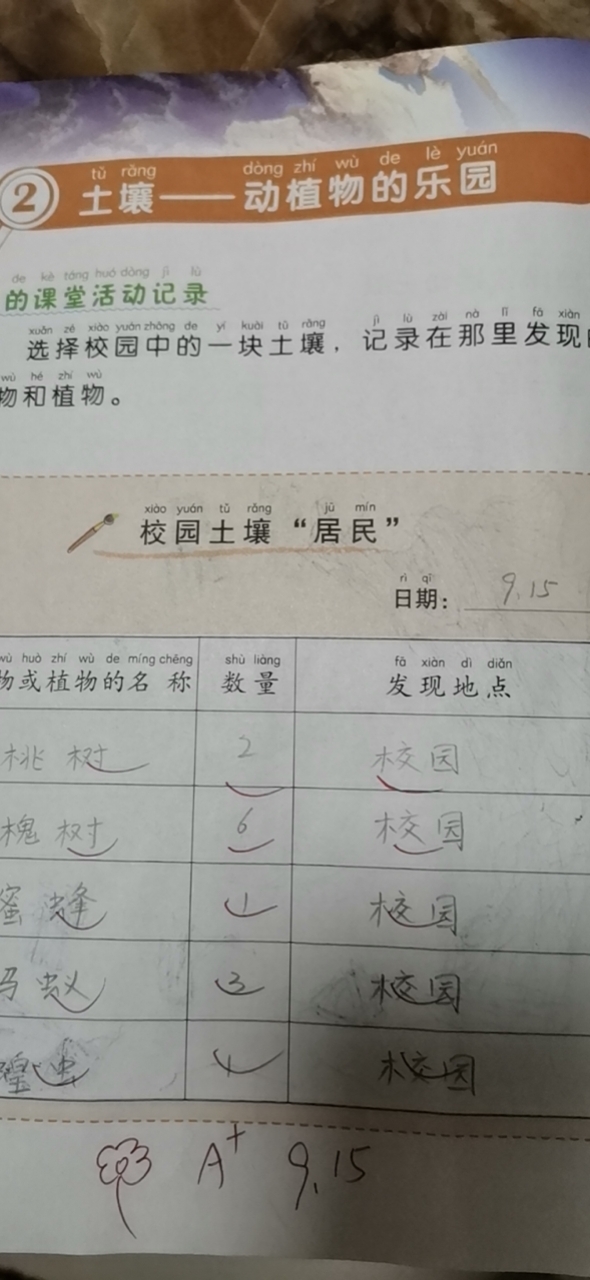 2
tǔ rǎng dòng zhí wù de lè yuán
土壤——动植物的乐园
de kè táng huó dòng jì lù
的课堂活动记录
xuǎn zé xiào yuán zhōng de yí kuài tǔ rǎng jì lù zài nà lǐ fā xiàn
选择校园中的一块土壤，记录在那里发现
wù hé zhí wù
物和植物。
xiào yuán tǔ rǎng jū mín
校园土壤“居民”
rì qī
日期：9.15
wù huò zhí wù de míng chēng shù liàng fā xiàn dì diǎn
物或植物的名称 数量 发现地点
桃树 2 校园
槐树 6 校园
蜜蜂 1 校园
马蚁 3 校园
蝗虫 校园
A+ 9.15